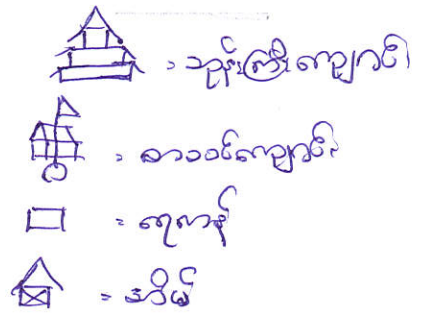 = ဘုန်းကြီးကျောင်း
= စာသင်ကျောင်း
= ရေကန်
= အိမ်